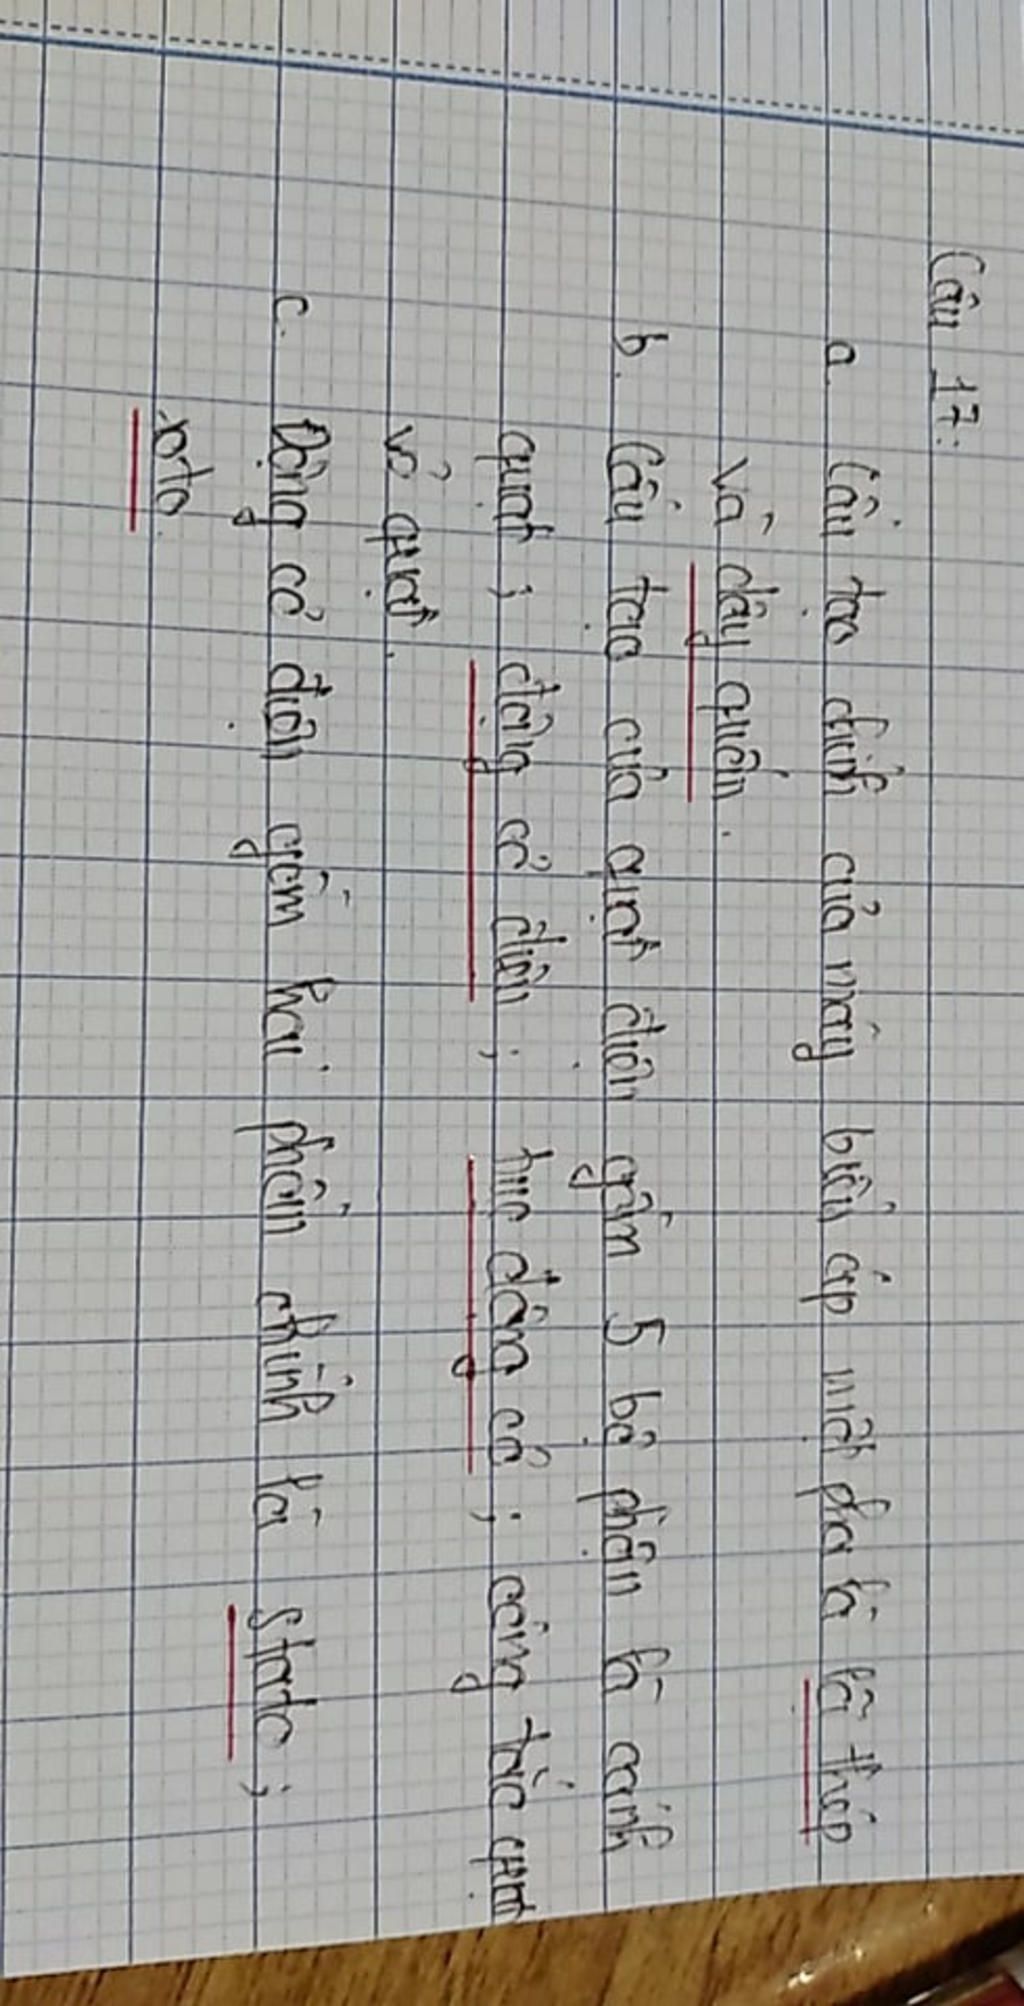 Câu 17:
a. Cấu tạo chính của máy biến áp một pha là lõi thép
và dây quấn.
b. Cấu tạo của quạt điện gồm 5 bộ phận là cánh
quạt ; động cơ điện ; trục động cơ ; công tắc quạt
vỏ quạt.
c. Động cơ điện gồm hai phần chính là stato ;
roto.